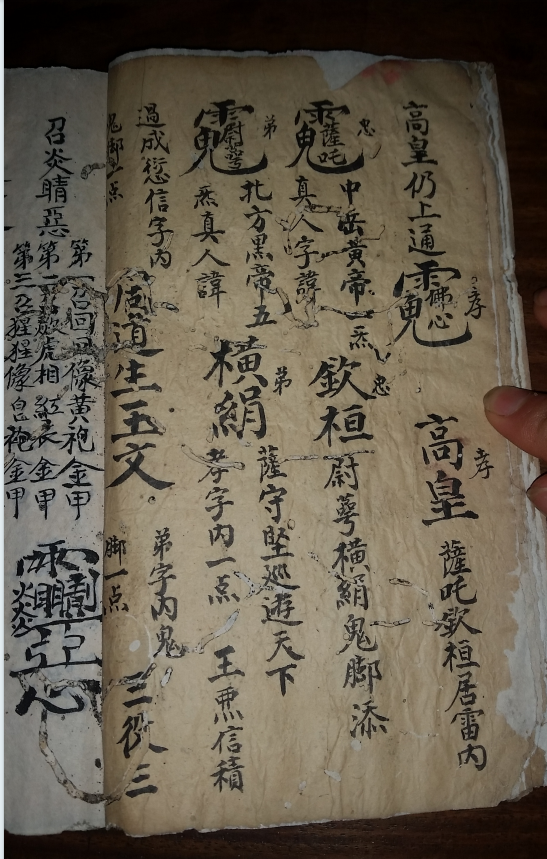 高皇仍上通 佛心 孝
高皇 孝 薩吒欽桓居雷内
薩吒 忠
中岳黄帝一炁
真人字諱
欽桓 忠 尉䔢横絹鬼脚添
弟
北方黑帝五
炁真人諱
横絹 弟 薩守堅巡遊天下
孝字内一点 王惡信積
過成愆信字内
鬼脚一点
周道生玉文
弟字内鬼
脚一点
三役三
召炎晴惡
第一召回回像黄袍金甲
虎相紅衣金甲
第三召猩猩像皂袍金甲